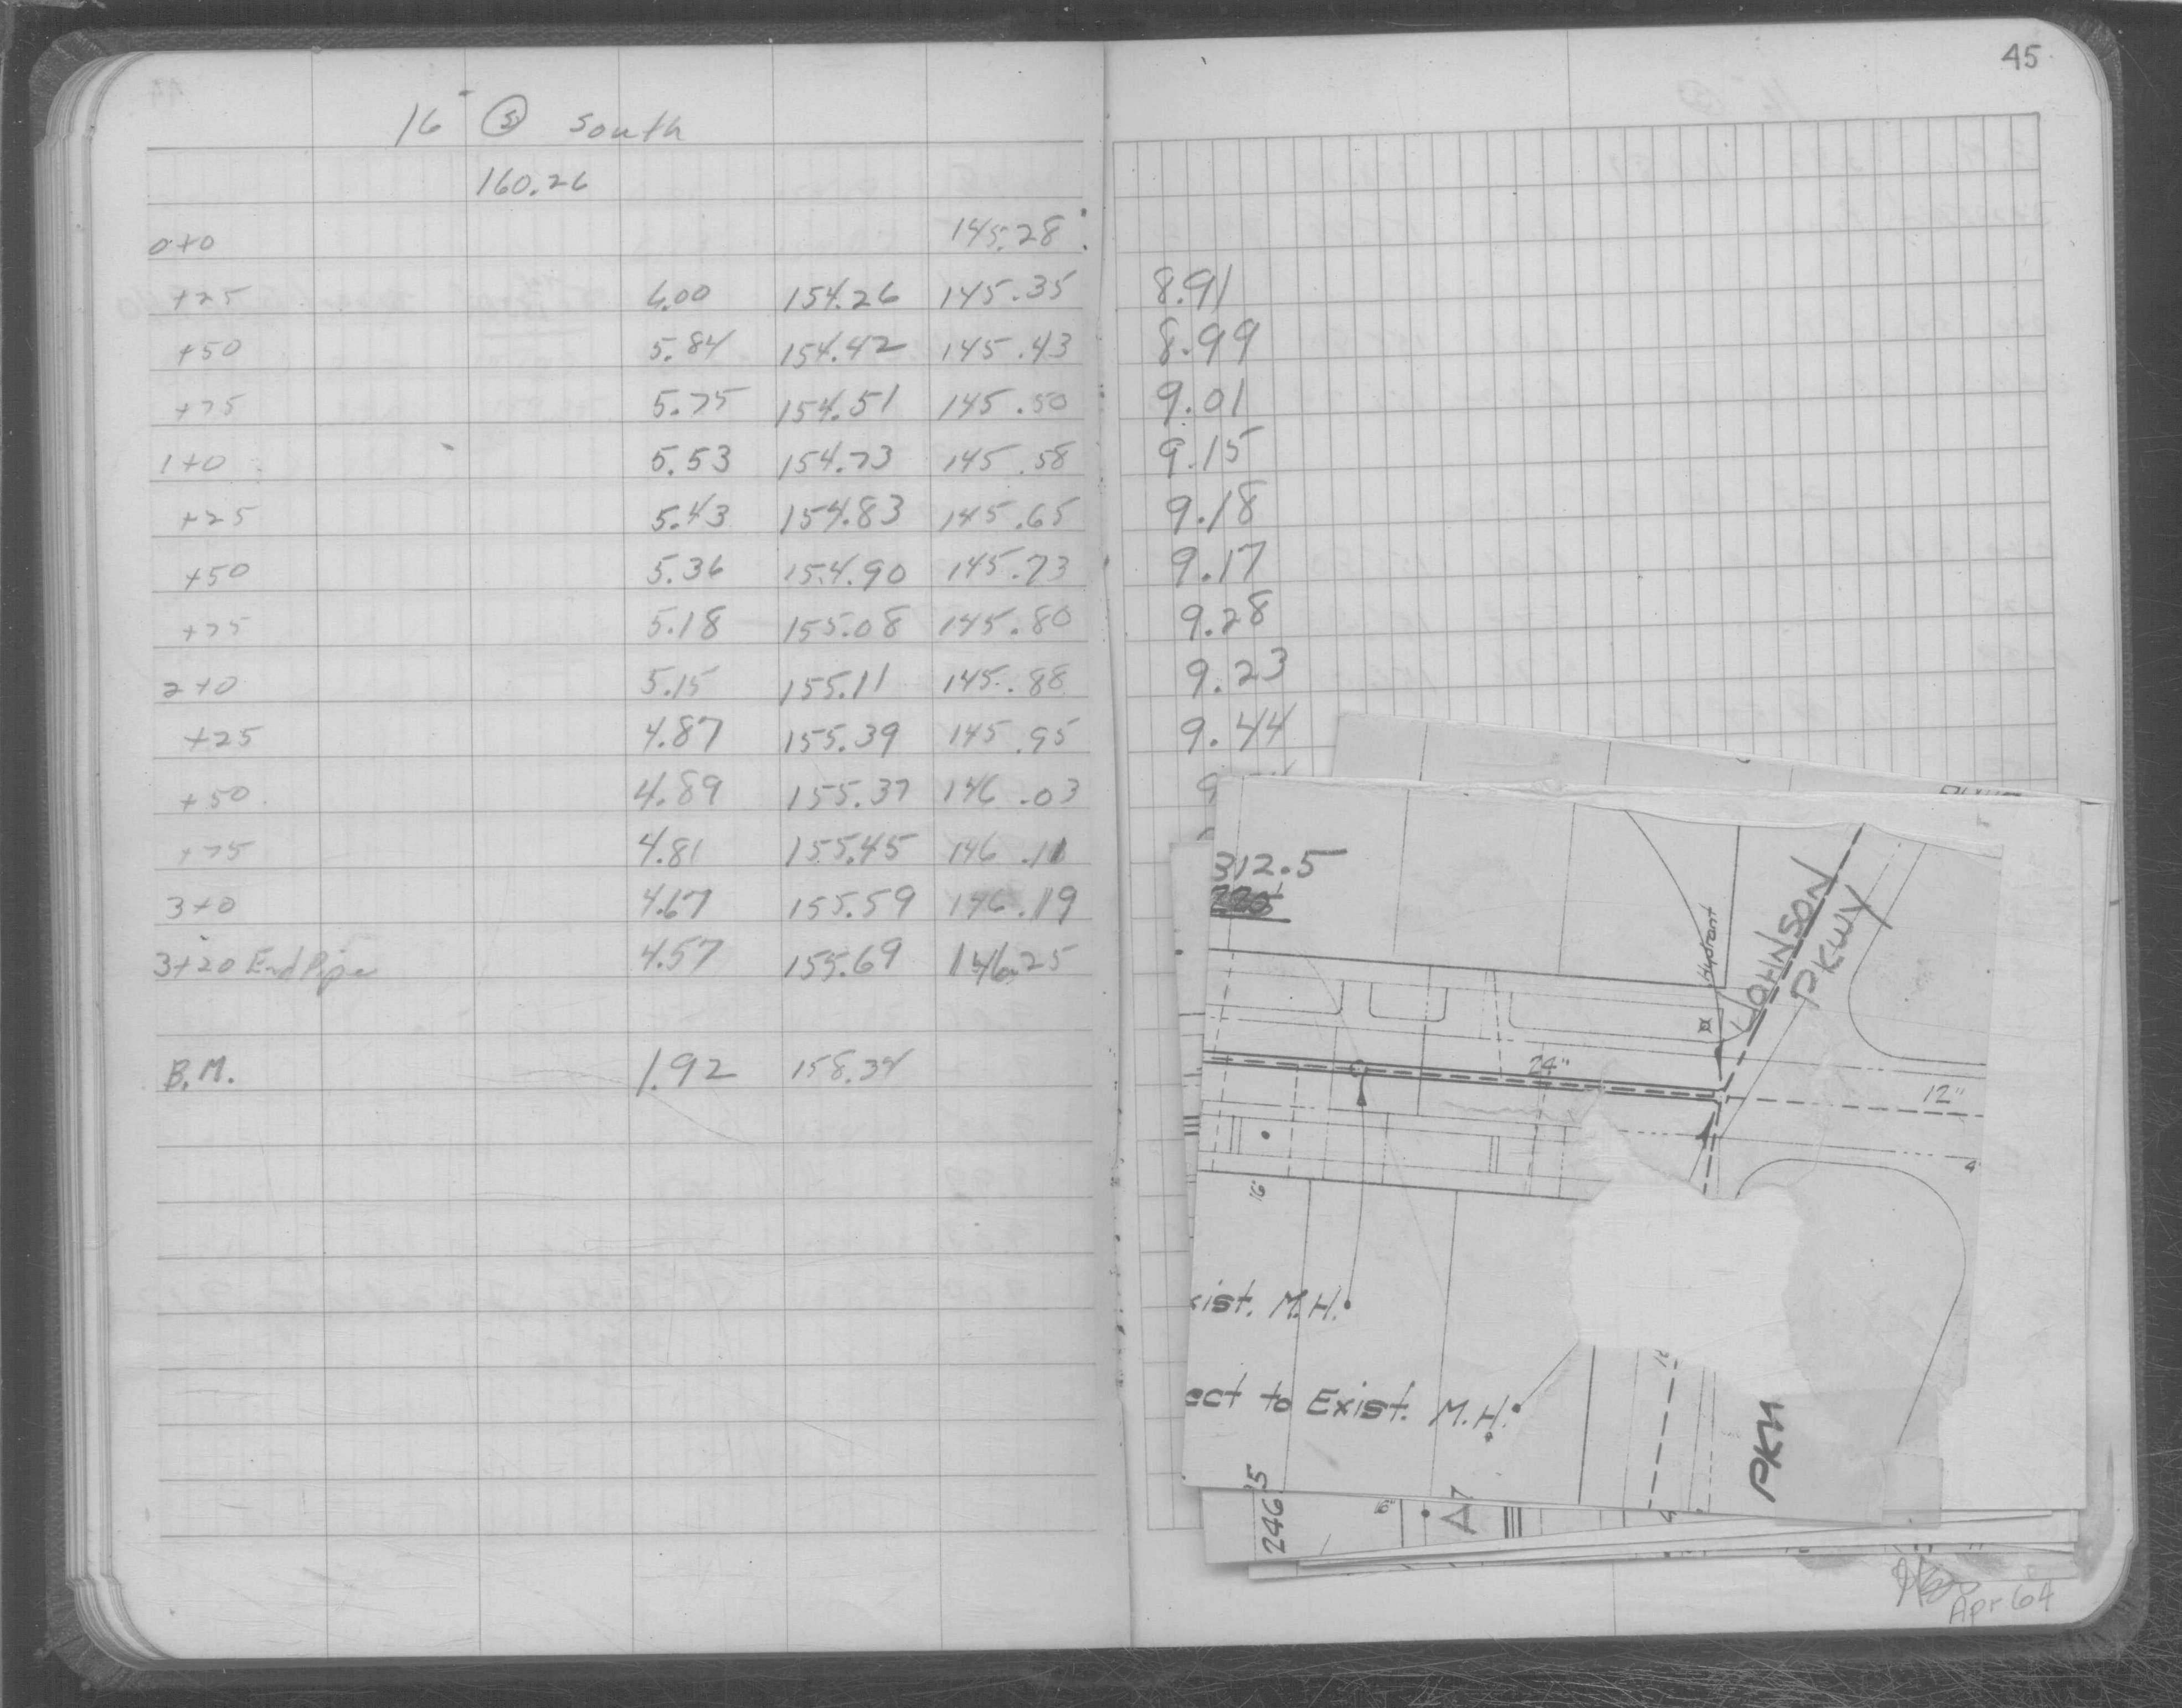 16" Ⓢ South
160.26
0+0 145.28
+25 6.00 154.26 145.35 8.91
+50 5.84 154.42 145.43 8.99
+75 5.75 154.51 145.50 9.01
1+0 5.53 154.73 145.58 9.15
+25 5.43 154.83 145.65 9.18
+50 5.36 154.90 145.73 9.17
+75 5.18 155.08 145.80 9.28
2+0 5.15 155.11 145.88 9.23
+25 4.87 155.39 145.95 9.44
+50 4.89 155.37 146.03 9
+75 4.81 155.45 146.11
3+0 4.67 155.59 146.19
3+20 End Pipe 4.57 155.69 146.25
B.M. 1.92 158.34
45
312.5
Hydrant
JOHNSON
PKWY
24"
12"
4
16"
xist. M.H.
ect to Exist. M.H.
PKW
246
15
6"
A
Apr 64